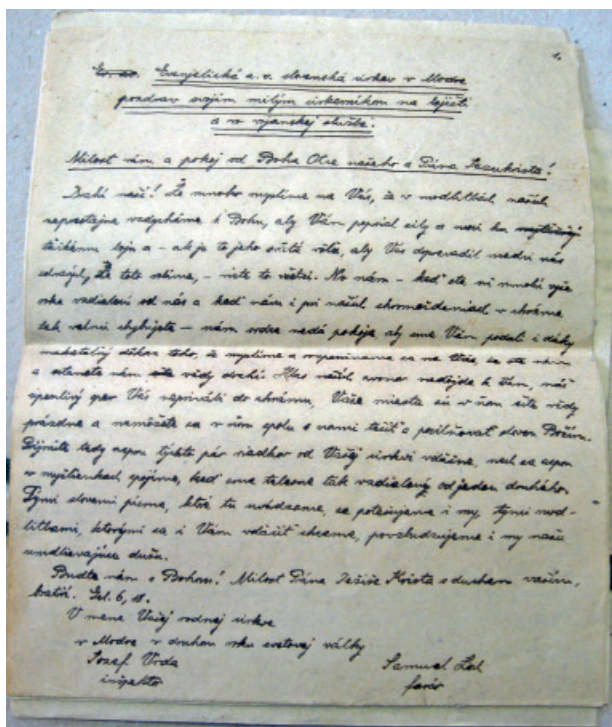 1.
Evanjelická a. v. slovenská cirkev v Modre
pozdrav svojim milým cirkevníkom na bojišti
a vo vojanskej službe.
Milosť vám a pokoj od Boha Otce našeho a Pána Jezukrista!
Drahí naši! Že mnoho myslíme na Vás, že v modlitbách našich
neprestajne vzdycháme k Bohu, aby Vám poprial sily a
ťažkému boju a – ak je to jeho svätá vôľa, aby Vás doprevadil medzi nás
zdravých, že toto robíme, – viete to všetci. No nám – keď ste mi mnohí vyše
roka vzdialení od nás a keď nám i pri našich shromaždeniach v chráme
tak veľmi chybujete – nám srdce nedá pokoja, aby sme Vám podali i dáky
makateľný dôkaz toho, že myslíme a rozpomíname sa na Vás, že ste nám
a ostanete nám vždy drahí. Hlas našich zvonov nedôjde k Vám, náš
spev Vás neprivábi do chrámu, Vaše miesta sú v ňom ešte vždy
prázdne a nemôžete sa v ňom spolu s nami tešiť a posilňovať slovom Božím.
Prijmite tedy aspoň týchto pár riadkov od Vašej cirkvi vďačne, nech sa aspoň
v myšlienkach spojíme, keď sme telesne tak vzdialený od jeden druhého.
Tými slovami písma, ktoré tu uvádzame, se potešujeme i my, tými mod-
litbami, ktorými sa i Vám vďačiť chceme, povzbudzujeme i my našu
umdlievajúcu dušu.
Buďte nám s Bohom! Milosť Pána Ježiše Krista s duchem vaším,
bratří. Gal. 6, 18.
V mene Vašej rodnej cirkve
v Modre v druhom roku svetovej války
Jozef Vrda
inšpektor
Samuel
farár